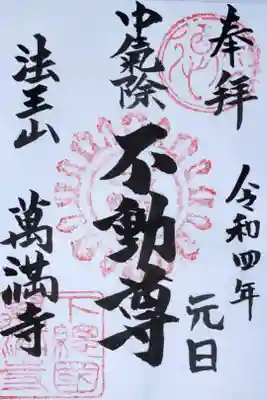 奉拝
令和四年
元日
中氣除
不動尊
法王山
萬満寺